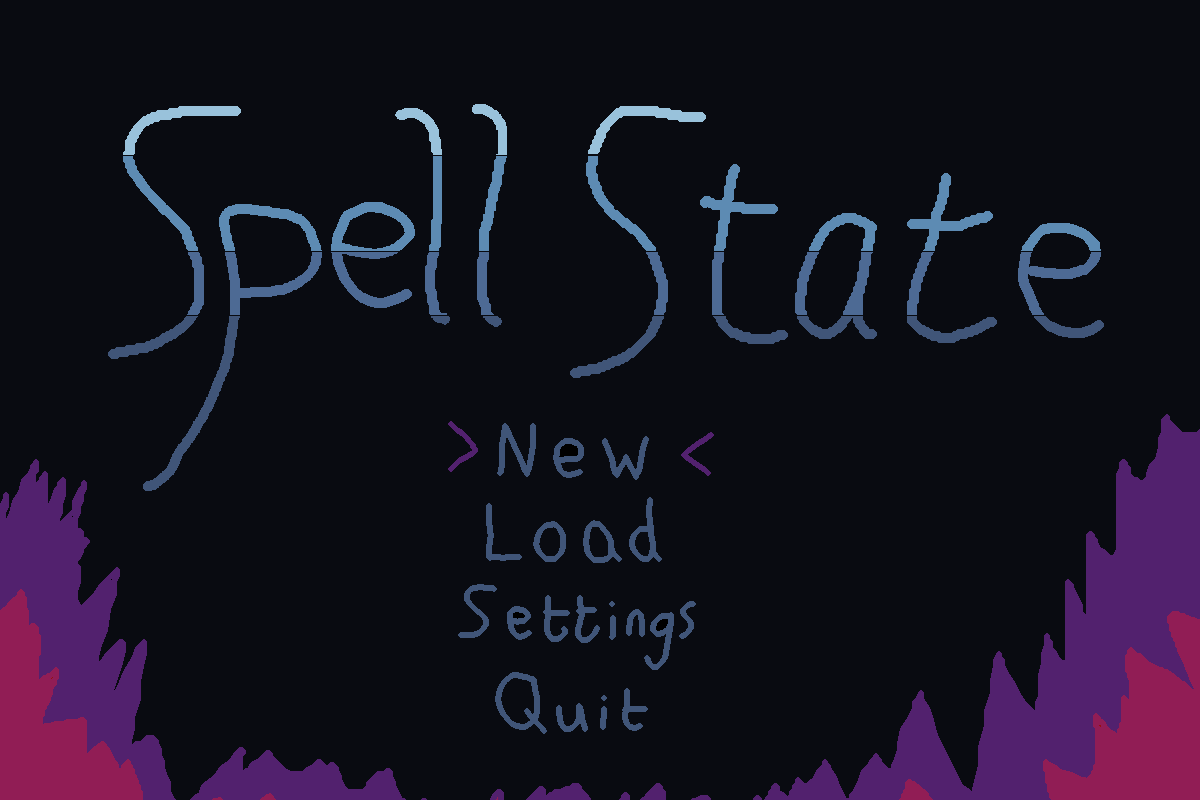 Spell State
> New <
Load
Settings
Quit